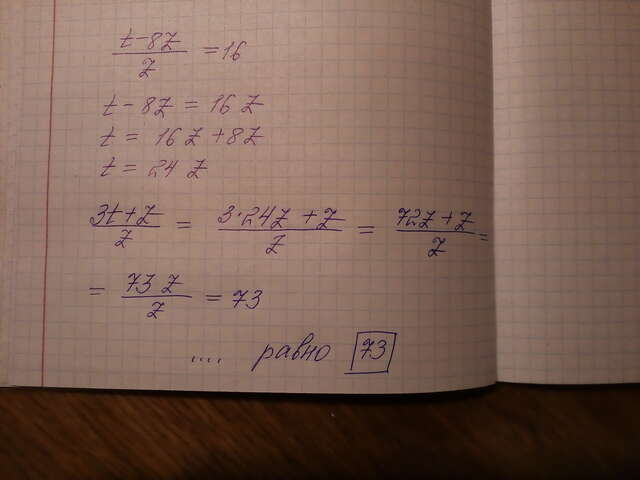 t-8z/z = 16
t - 8z = 16 z
t = 16 z + 8z
t = 24 z
3t+z/z = 3·24z + z/z = 72z + z/z =
= 73 z/z = 73
.... равно 73